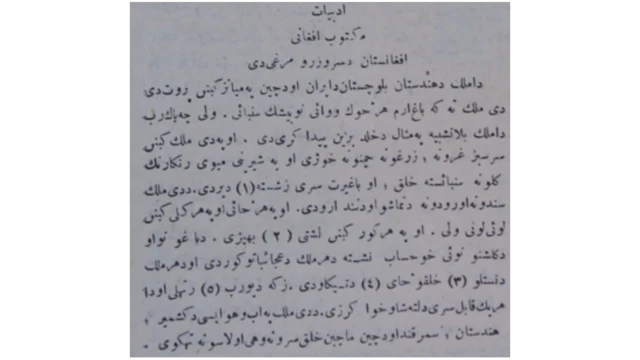 ادبیات
مکتوب افغانی
افغانستان دسروزرو مرغی دی
داملك دهندستان بلوچستان دایران اودچین په میانز کښ پروت دی
دی ملك ته که باغ ارم هر څوك ووائی نو بیشك ښائی . ولی چه پاك رب
داملك بلا تشبیه په مثال دخلد برین پیدا کری دی . او په دی ملك کښ
سرسبز غرونه ؛ زرغونه چمنونه خوژی او په شیرینی میوی رنکارنك
کلونه ښائسته خلق ؛ او باغیرت سری زشته (۱) دیردی . ددی ملك
سندونه اورودونه دتماشو اودنند ارودی . او په هر ځائی او په هر کلی کښ
لوئی لوئی ولی . او په هر کور کښ لښتی (۲) بهیژی . دباغو نواو
دکلشنو نوئی خو حساب نشته دهر ملك دعجائباتو کوردی اود هر ملك
دښتلو (۳) خلقو ځای (۴) دتسکاودی . زکه دیورب (۵) رتهلی اودا
هریك قابل سری دلته شاوخوا کرزی . ددی ملك په اب وهوا یسی دکشمیر ؛
هندستان ؛ سمرقند اودچین ماچین خلق سرونه وهی اولاسونه تهکوی .